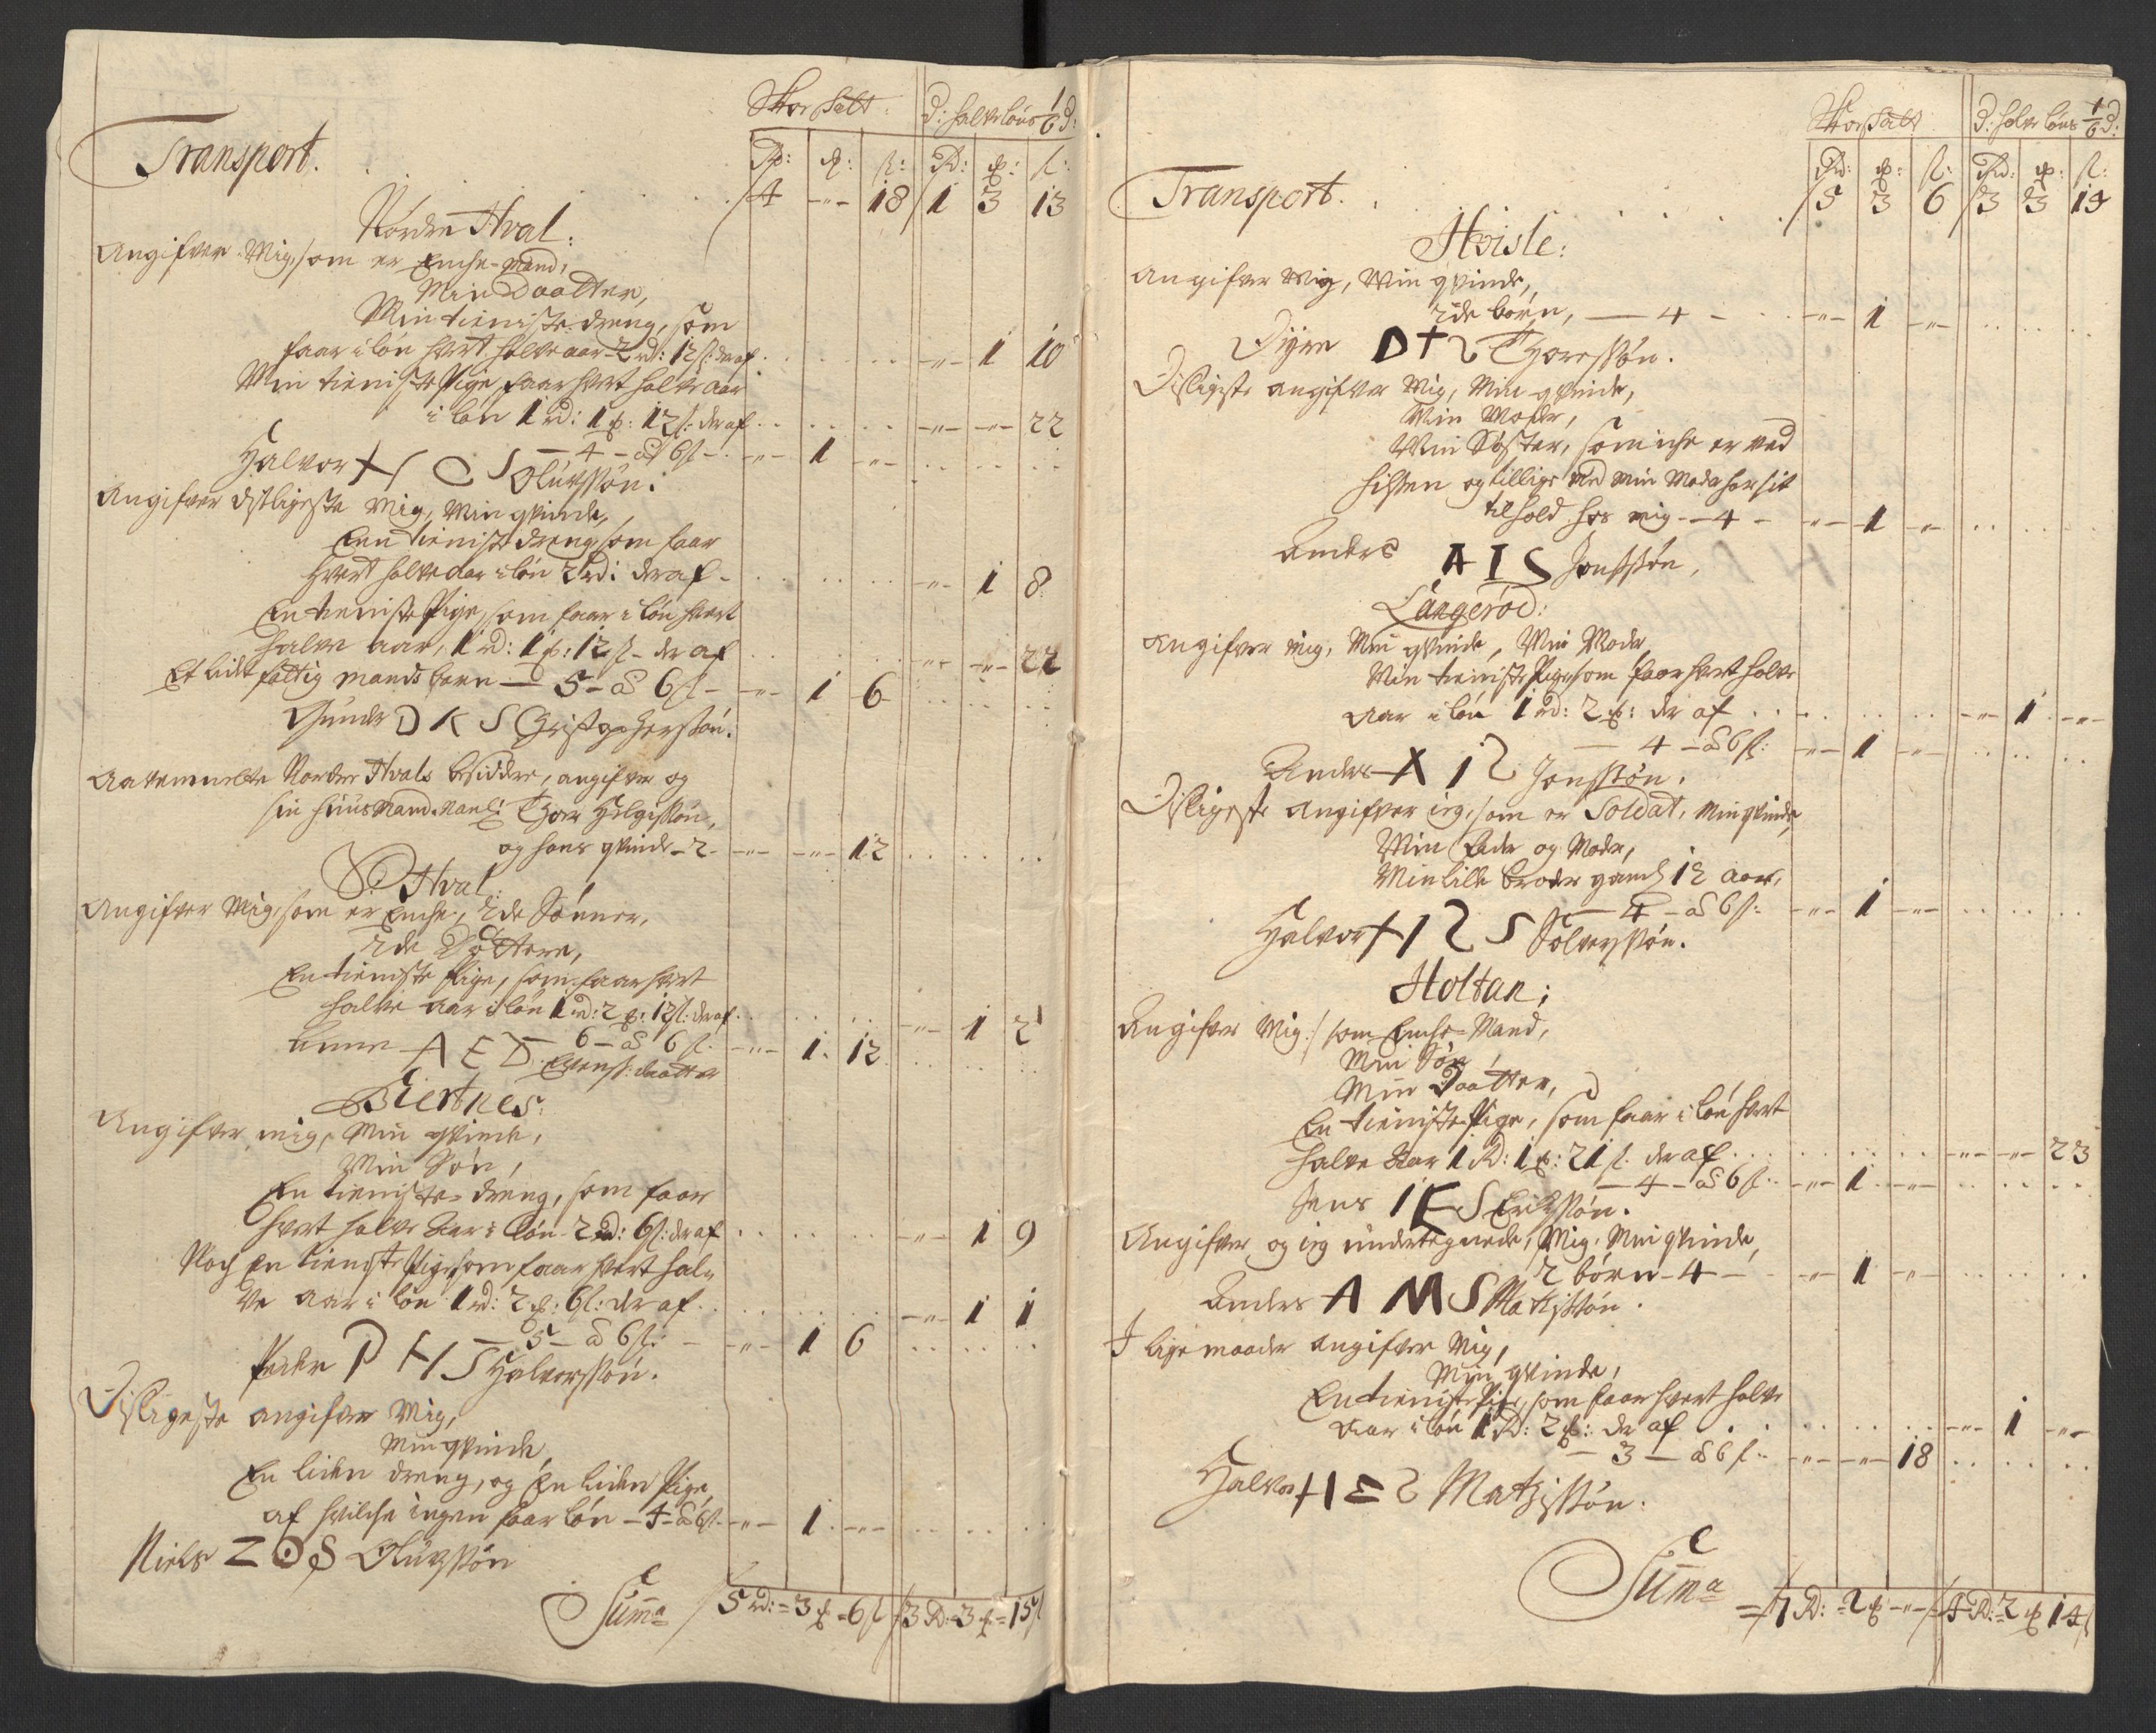 Skoeskatt d: halve løns 1/6 d:
Rd: ꝑ: s: Rd: ꝑ: s:
Transport. 4 -"- 18 1 3 13
Nordre Hval:
Angifver Mig, som er Enche-Mand,
Min Daatter,
Min tieniste dreng, som
faar i løn hvert halve aar 2 rd: 12 s: deraf -"- 1 10
Min tieniste Pige, faar hvert halve aar
i løn 1 rd: 1 ꝑ: 12 s: deraf -"- -"- 22
- 4 - à 6 s - -"- 1 -"-
Halvor H O S Olufssøn.
Angifver disligeste Mig, Min qvinde,
Enn tieniste dreng, som faar
hvert halve aar i løn 2 rd: deraf - -"- 1 8
En tieniste Pige, som faar i løn hvert
halve aar, 1 rd: 1 ꝑ: 12 s - deraf -"- -"- 22
Et lidet fattig mands barn - 5 - à 6 s - -"- 1 6
Gunder D K S Christophersøn.
Nordre Hvals besidder, angifver og
sin huusmand Nanl: Thor Helgissøn,
og hans qvinde - 2 - -"- -"- 12
S: Hval:
Angifver Mig, som er Enche, 2de Sønner,
2de Døttere,
En tieniste Pige, som faar hvert
halve aar i løn 1 rd: 2 ꝑ: 12 s: deraf -"- 1 2
- 6 - à 6 s: -"- 1 12
Anne A E D Evens: daatter
Biertnes:
Angifver mig, Min qvinde,
Min Søn,
En tieniste dreng, som faar
hvert halve Aar i løn - 2 rd: 6 s: deraf -"- 1 9
Noch En tieniste Pige, som faar hvert hal-
ve aar i løn 1 rd: 2 ꝑ: 6 s: deraf -"- 1 1
- 5 - à 6 s: - -"- 1 6
Peder P H S Halvorssøn.
Disligeste angifver Mig,
Min qvinde,
En liden dreng, og En liden Pige,
af hvilche ingen faar løn - 4 - à 6 s - -"- 1 -"-
Niels Z O S Olufssøn
Summa 5 rd: = 3 ꝑ = 6 s 3 Rd: = 3 ꝑ = 15 s
Skoeskatt d: halve løns 1/6 d:
Rd: ꝑ: s: Rd: ꝑ: s:
Transport. 5 3 6 3 3 15
Hvisle:
Angifver Mig, Min qvinde,
2de børn, - 4 - -"- 1 -"-
Dyre D T S Thoressøn.
Disligeste angifver Mig, Min qvinde,
Min Moder,
Min Søster, som iche er ved
hilsen og tillige med min Moder har sit
tilhold hos mig - 4 - -"- 1 -"-
Anders A I S Jonssøn,
Langerød:
Angifver mig, Min qvinde, Min Moder
Min tieniste Pige som faar hvert halve
Aar i løn 1 rd: 2 ꝑ: deraf -"- 1 -"-
- 4 - à 6 s: -"- 1 -"-
Anders A I S Jonssøn.
Disligeste Angifver ieg, som er Soldat, Min qvinde,
Min Fader og Moder,
Min lille broder gaml 12 aar,
- 4 - à 6 s: -"- 1 -"-
Halvor H S S Sølverssøn.
Holtan;
Angifver Mig, som Enche-Mand,
Min Søn,
Min Daatter,
En tieniste Pige, som faar i løn hvert
halve Aar 1 Rd: 1 ꝑ: 21 s: deraf -"- -"- 23
- 4 - à 6 s: -"- 1 -"-
Jens I E S Erichssøn.
Angifver og ieg undertegnede, Mig, Min qvinde,
2 børn - 4 - -"- 1 -"-
Anders A M S Matzissøn.
I lige maader angifver Mig,
Min qvinde,
En tieniste Pige, som faar hvert halve
Aar i løn 1 Rd: 2 ꝑ: deraf -"- 1 -"-
- 3 - à 6 s: -"- -"- 18
Halvor H Σ S Matzissøn.
Summa 7 Rd: = 2 ꝑ -"- 4 Rd: = 2 ꝑ 14 s